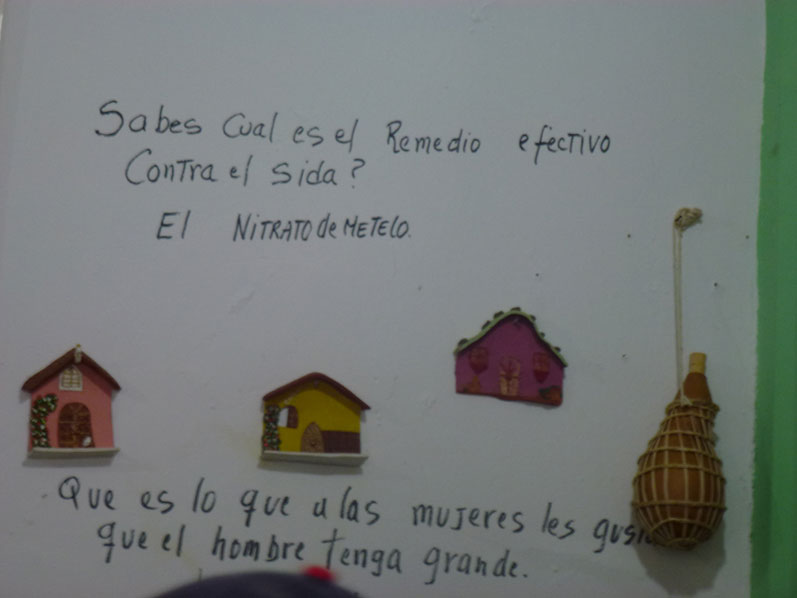 Sabes Cual es el Remedio efectivo
Contra el Sida?
El NITRATO de METELO.
Que es lo que a las mujeres les
que el hombre tenga grande.